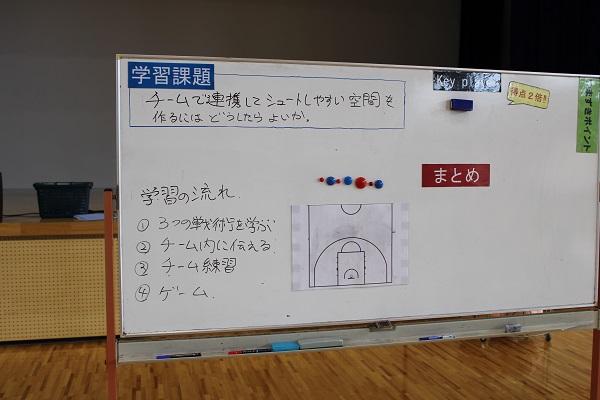 学習課題
チームで連携してシュートしやすい空間を
作るにはどうしたらよいか。
Key play
得点2倍!!
まずきポイント
まとめ
学習の流れ
① 3つの戦術を学ぶ
② チーム内に伝える
③ チーム練習
④ ゲーム